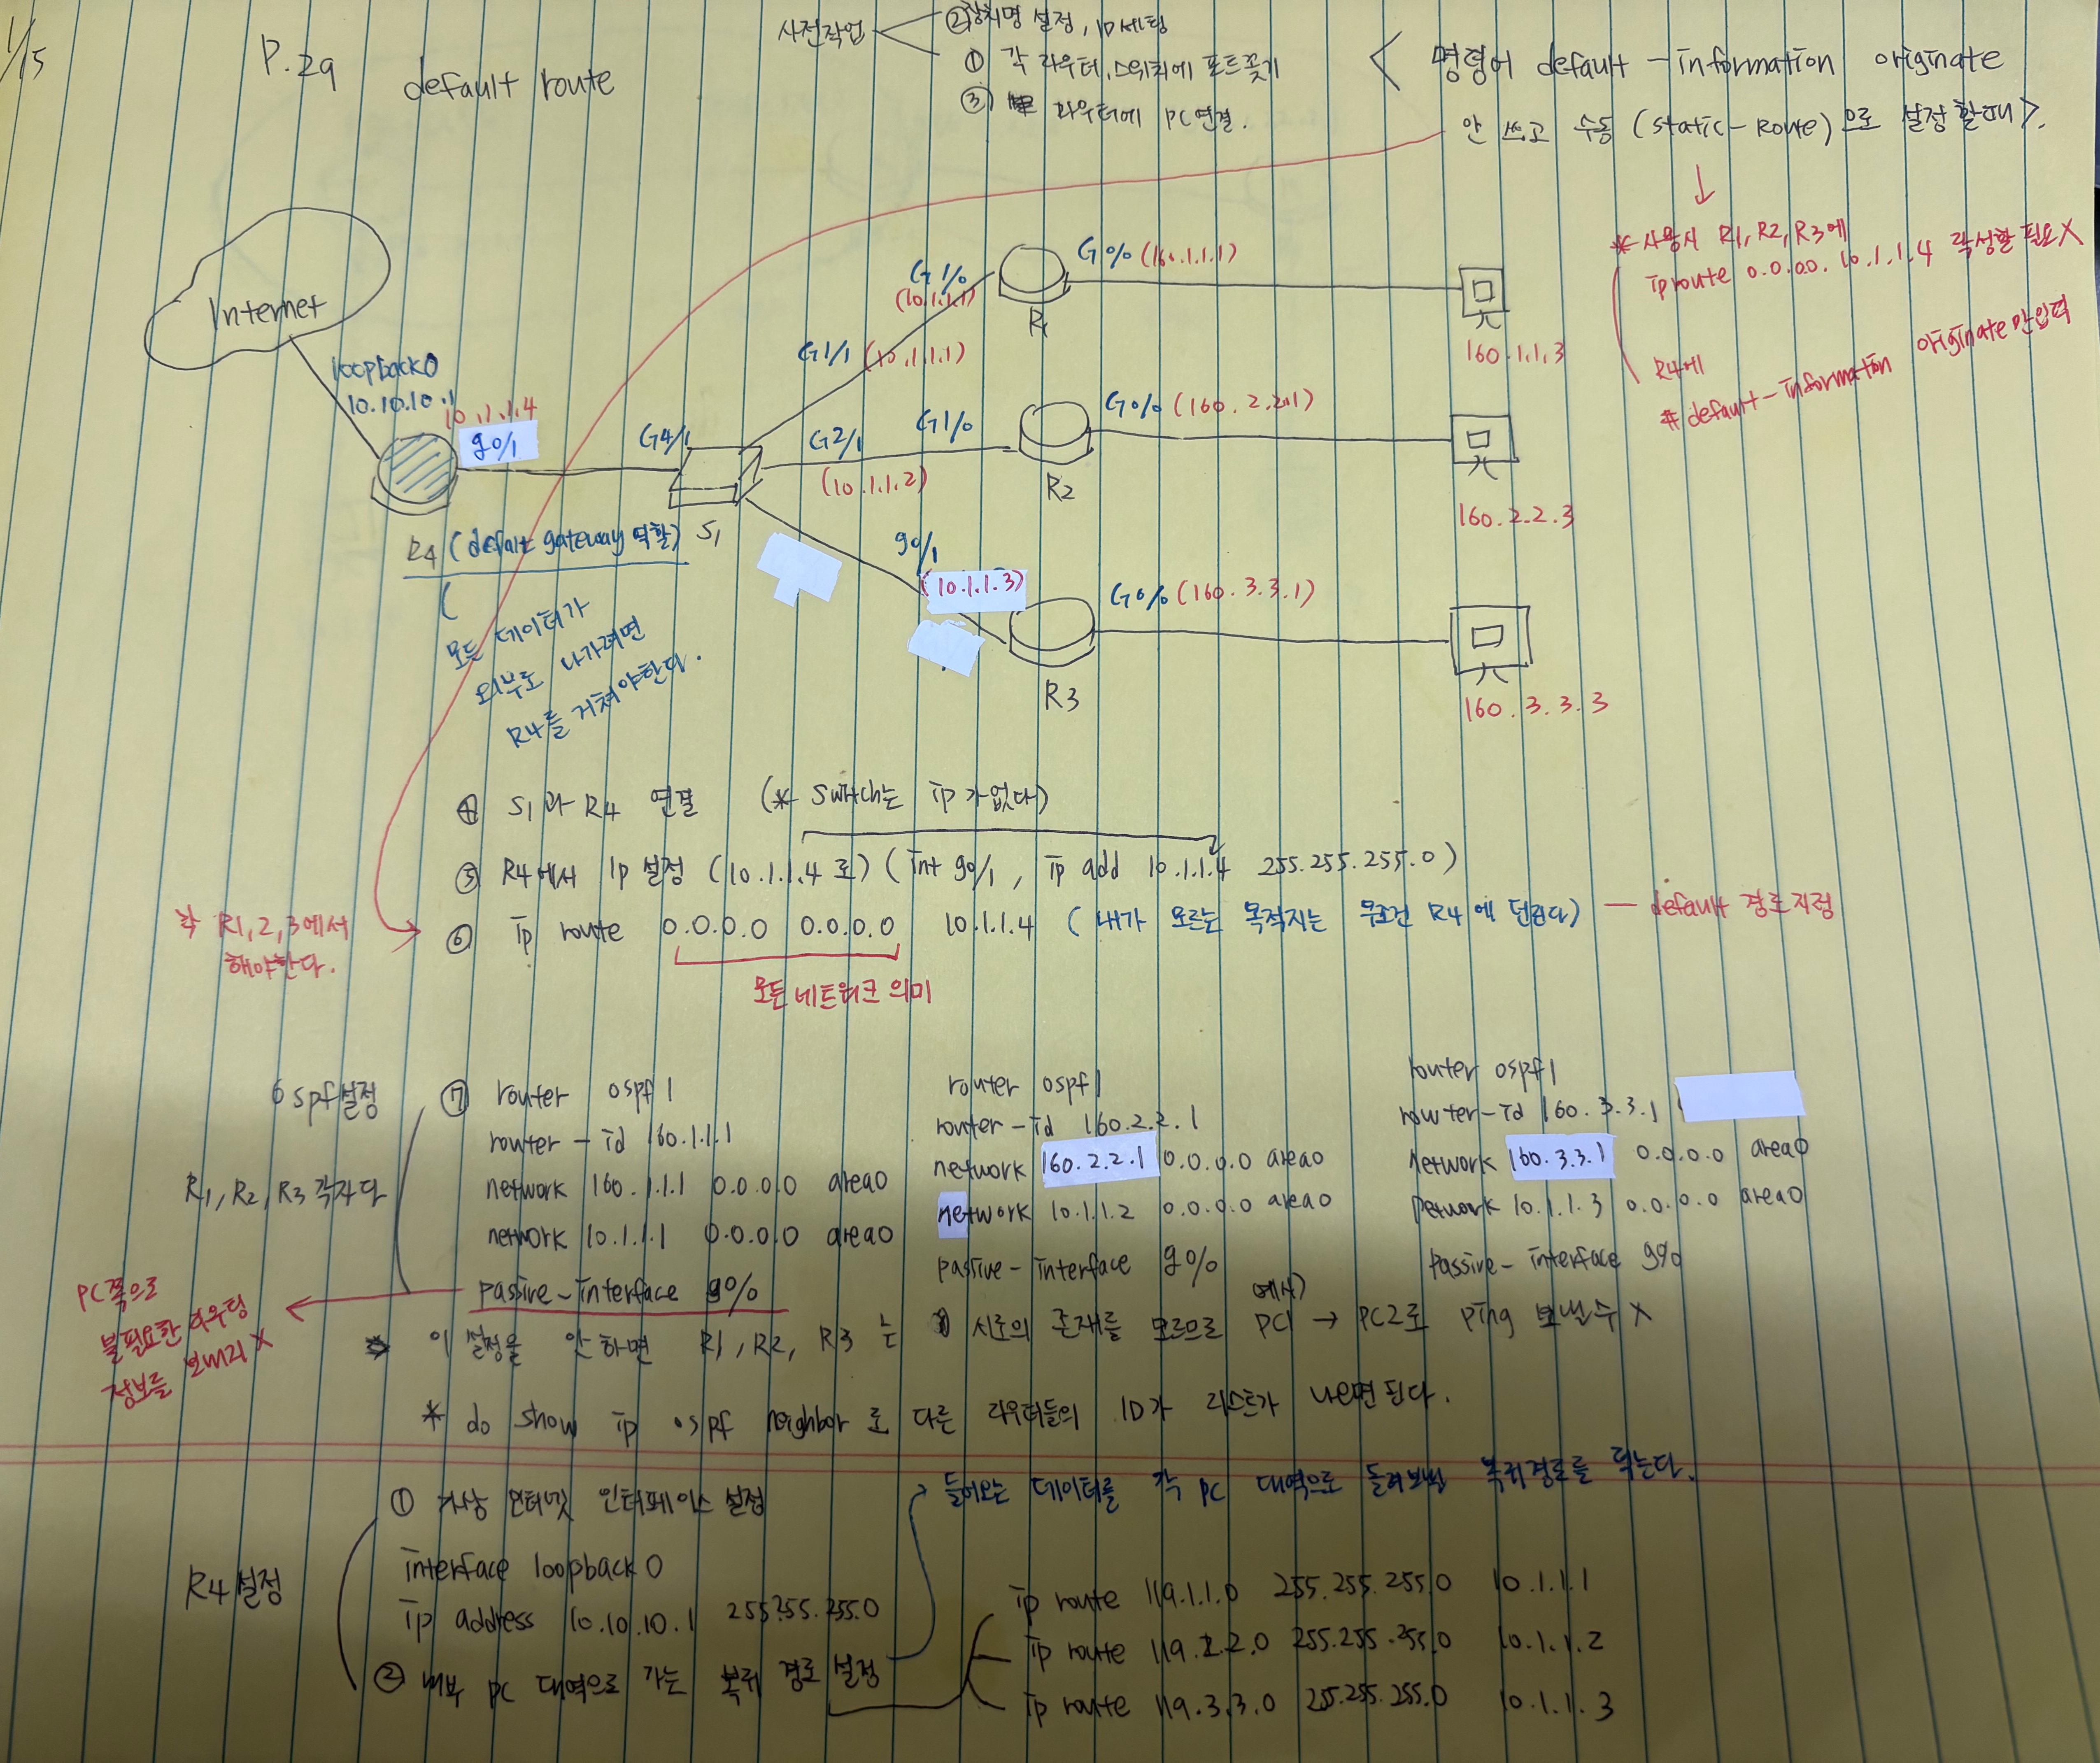 1/15
P.29
default route
사전작업
② 장치명 설정, ID세팅
① 각 라우터, 스위치에 포트꽂기
③ 라우터에 PC연결.
< 명령어 default-information originate
안 쓰고 수동 (static-route)으로 설정 할때 >.
* 사용시 R1, R2, R3에
ip route 0.0.0.0. 10.1.1.4 작성할 필요X
R4에
# default-information originate만입력
Internet
loopback0
10.10.10.1
10.1.1.4
g0/1
G4/1
S1
G1/1 (10.1.1.1)
G1/0
(10.1.1.1)
R1
G0/0 (160.1.1.1)
160.1.1.3
G2/1
(10.1.1.2)
G1/0
R2
G0/0 (160.2.2.1)
160.2.2.3
g0/1
(10.1.1.3)
R3
G0/0 (160.3.3.1)
160.3.3.3
R4 (default gateway 역할)
(
모든 데이터가
외부로 나가려면
R4를 거쳐야한다.
④ S1과 R4 연결 (* Switch는 ip가없다)
⑤ R4에서 Ip 설정 (10.1.1.4로) (int g0/1, ip add 10.1.1.4 255.255.255.0)
각 R1,2,3에서
해야한다.
⑥ ip route 0.0.0.0 0.0.0.0 10.1.1.4 (내가 모르는 목적지는 무조건 R4에 던진다) — default 경로지정
모든 네트워크 의미
ospf설정
R1, R2, R3 각자 다
⑦ router ospf 1
router-id 160.1.1.1
network 160.1.1.1 0.0.0.0 area0
network 10.1.1.1 0.0.0.0 area0
passive-interface g0/0
router ospf 1
router-id 160.2.2.1
network 160.2.2.1 0.0.0.0 area0
network 10.1.1.2 0.0.0.0 area0
passive-interface g0/0
router ospf 1
router-id 160.3.3.1
network 160.3.3.1 0.0.0.0 area0
network 10.1.1.3 0.0.0.0 area0
passive-interface g0/0
PC쪽으로
불필요한 라우팅
정보를 보내지 X
* 이 설정을 안 하면 R1, R2, R3 는 서로의 존재를 모르므로 PC1에서) → PC2로 ping 보낼수 X
* do show ip ospf neighbor로 다른 라우터들의 ID가 리스트가 나오면 된다.
R4 설정
① 가상 인터넷 인터페이스 설정
interface loopback 0
ip address 10.10.10.1 255.255.255.0
② 내부 PC 대역으로 가는 복귀 경로 설정
들어오는 데이터를 각 PC 대역으로 돌려보낼 복귀경로를 적는다.
ip route 119.1.1.0 255.255.255.0 10.1.1.1
ip route 119.2.2.0 255.255.255.0 10.1.1.2
ip route 119.3.3.0 255.255.255.0 10.1.1.3